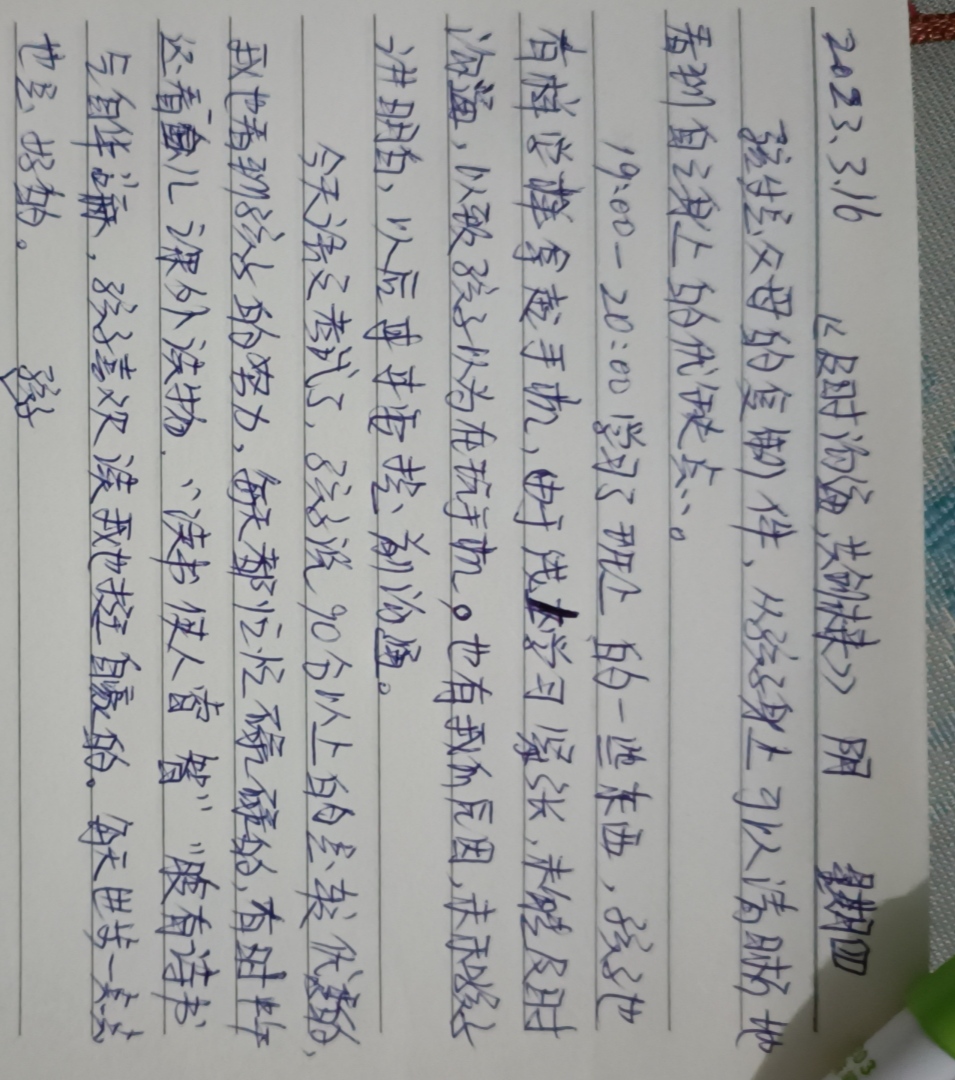 2023.3.16 《及时沟通,共创未来》 阴 星期四
孩子是父母的复制件、从孩子身上可以清晰地
看到自己身上的优缺点、。
19:00-20:00学习了班上的一些东西,孩子也
有样学样拿起手机,由于线上学习紧张,未能及时
沟通,以致孩子以为在玩手机。也有我的原因,未和孩子
讲明白、以后事事皆提前沟通。
今天语文考试了,孩子说90分以上的是我优秀的,
我也看到孩子的努力,每天都忙忙碌碌的,有时睡
还看会儿课外读物.“读书使人睿智”“腹有诗书
气自华”嘛,孩子喜欢读我也挺自豪的。每天进步一点点
也是好的。